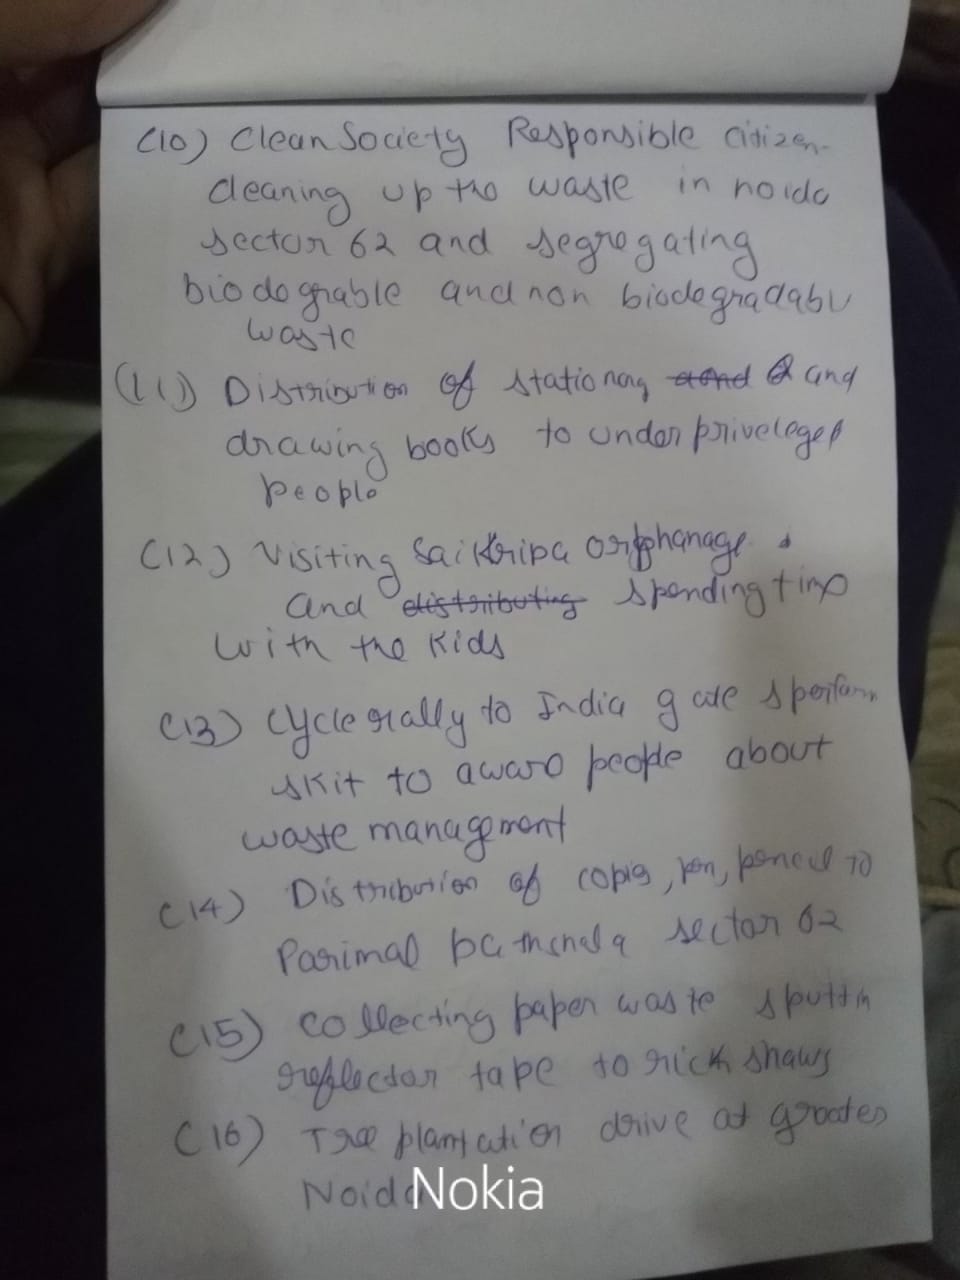 (10) Clean Society Responsible Citizen-
cleaning up the waste in noida
sector 62 and segregating
biodegrable and non biodegradable
waste
(11) Distribution of stationary and
drawing books to underpriveleged
people
(12) Visiting Sai Kripa orphanage &
and distributing spending time
with the Kids
(13) Cycle rally to India gate & perform
skit to aware people about
waste management
(14) Distribution of copies, pen, pencil to
Parimal sector 62
(15) Collecting paper waste & puttin
reflector tape to rickshaws
(16) Tree plantation drive at greater
Noida
Nokia